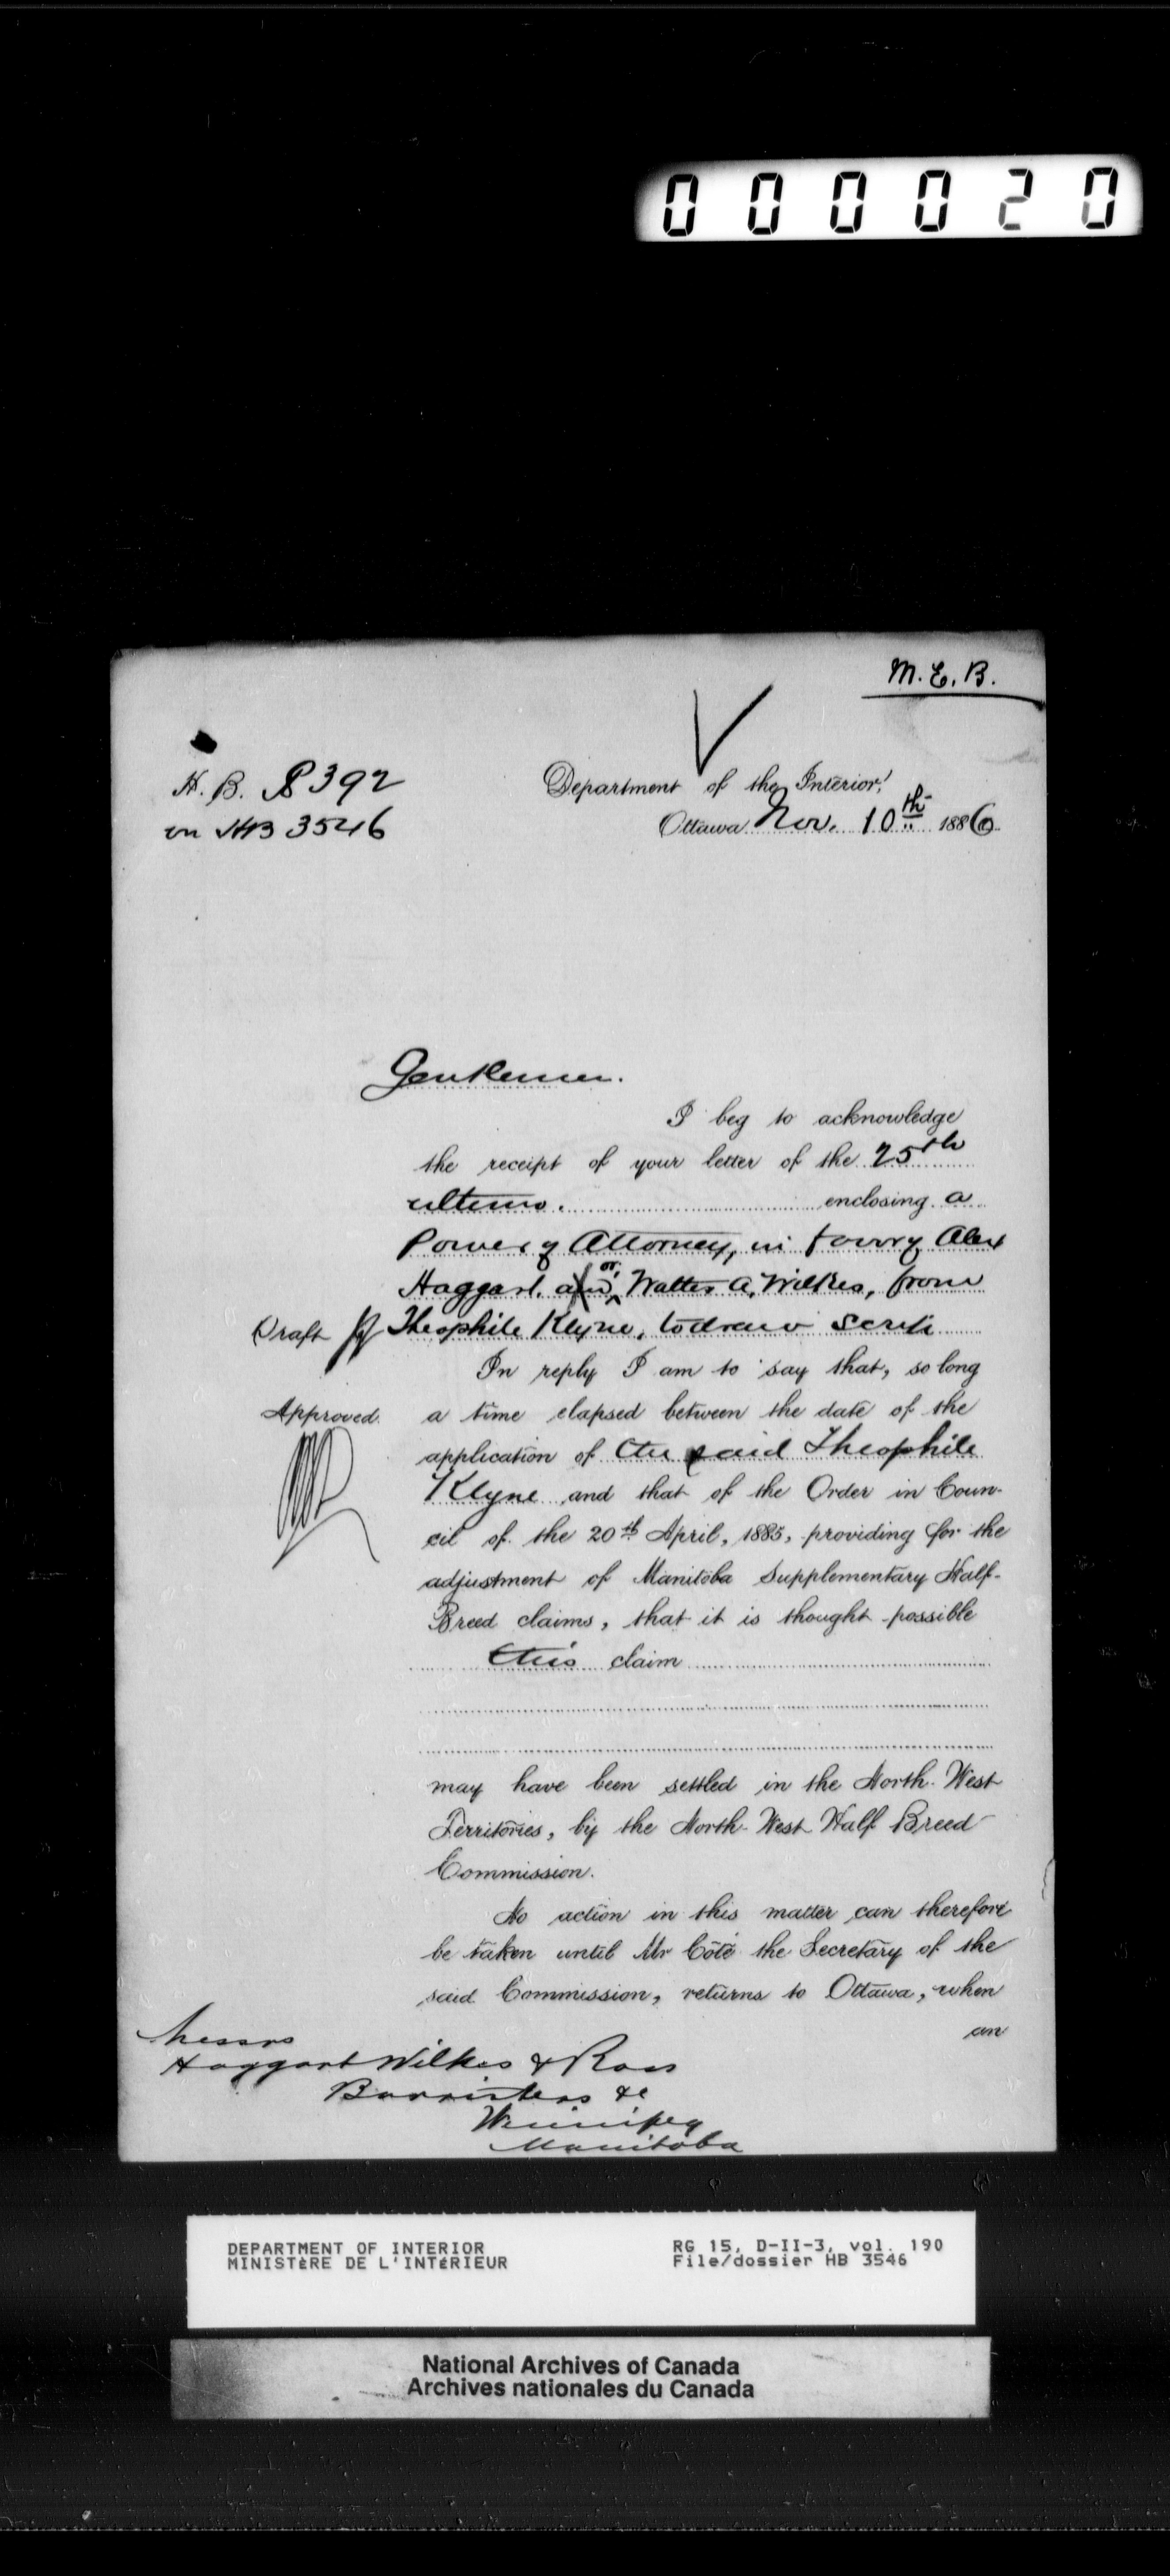 000020
M. E. B.
H. B. 8392
on HB 3546
Department of the Interior,
Ottawa Nov. 10th 1886
Gentlemen.
I beg to acknowledge
the receipt of your letter of the 25th
ultimo. enclosing a
Power of Attorney, in favor of Alex
Haggart. and or, Walter A. Wilkes, from
Draft Theophile Klyne, to draw Scrip
In reply I am to say that, so long
Approved. a time elapsed between the date of the
application of the said Theophile
Klyne and that of the Order in Coun-
cil of the 20th April, 1885, providing for the
adjustment of Manitoba Supplementary Half-
Breed claims, that it is thought possible
this claim
may have been settled in the North-West
Territories, by the North-West Half Breed
Commission.
No action in this matter can therefore
be taken until Mr Côté the Secretary of the
said Commission, returns to Ottawa, when
an
Messrs
Haggart Wilkes & Ross
Barristers &c
Winnipeg
Manitoba
DEPARTMENT OF INTERIOR
MINISTÈRE DE L'INTÉRIEUR
RG 15, D-II-3, vol. 190
File/dossier HB 3546
National Archives of Canada
Archives nationales du Canada